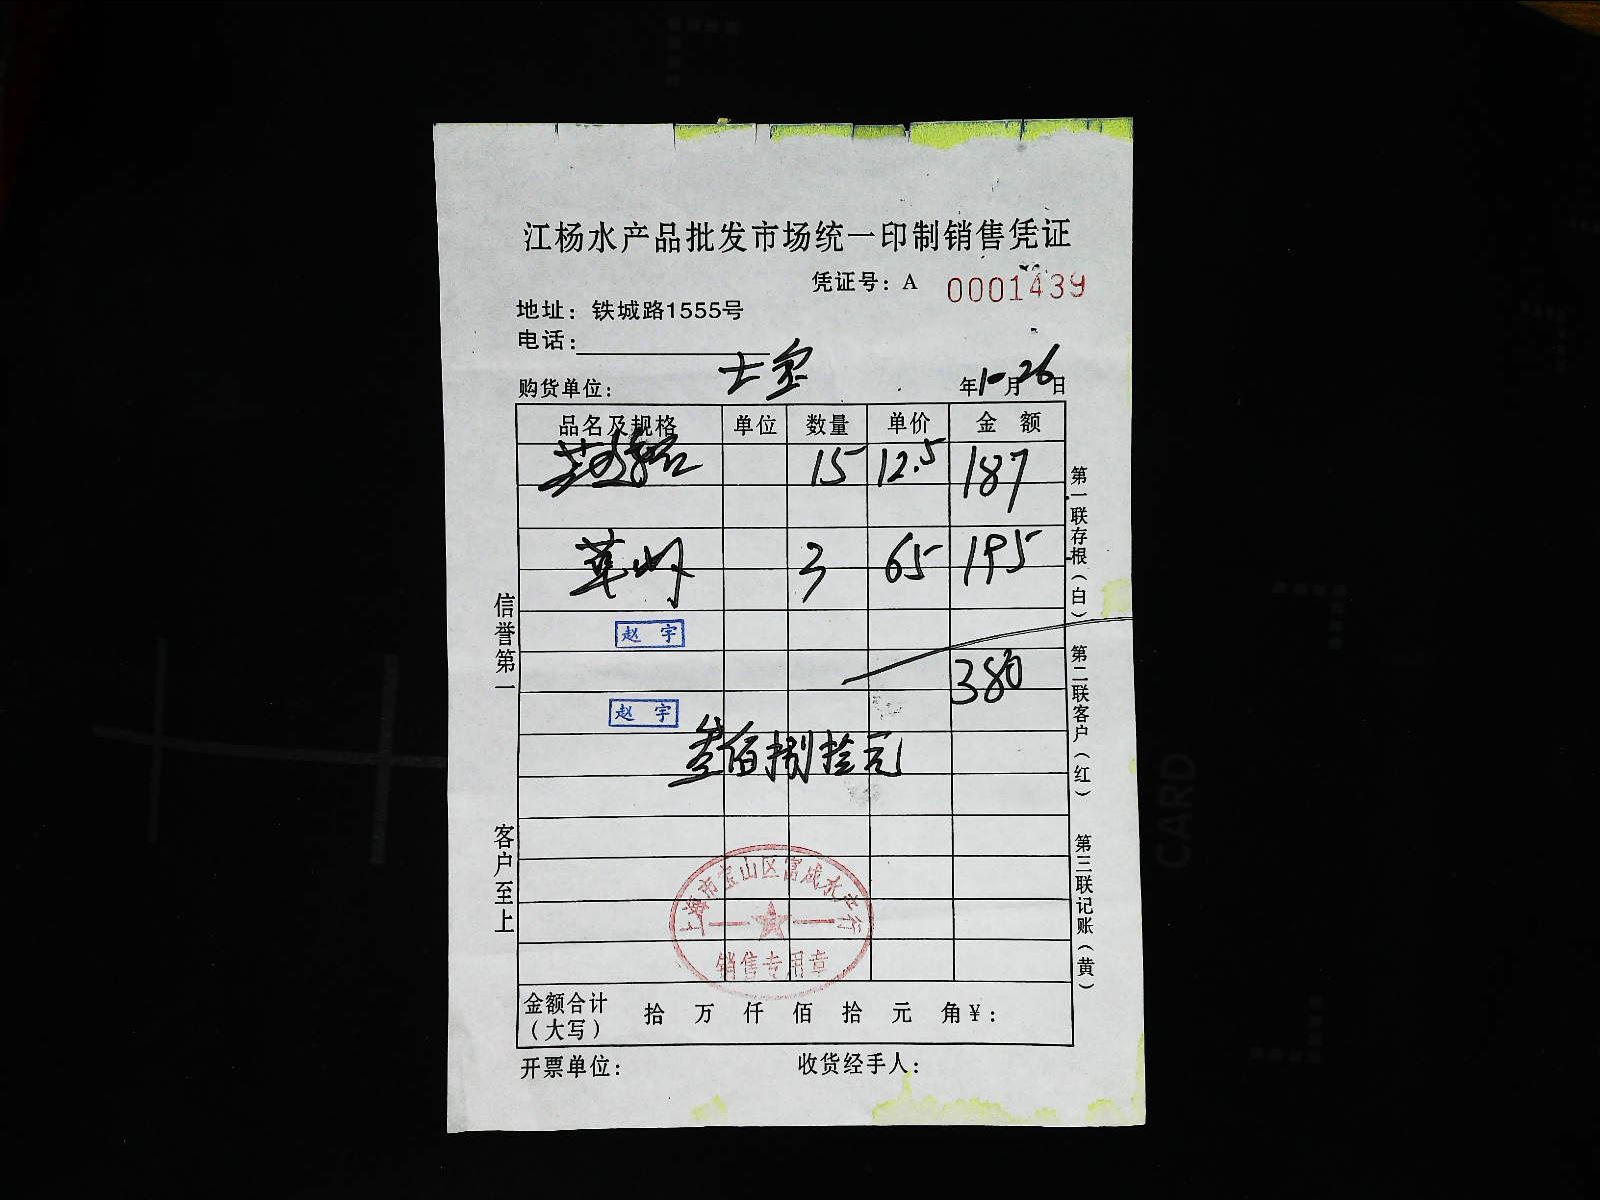 江杨水产品批发市场统一印制销售凭证
凭证号：A 0001439
地址：铁城路1555号
电话：
购货单位：
年 10 月 26 日
品名及规格 单位 数量 单价 金额
15 12.5 187
草虾 3 65 195
赵宇
380
赵宇
叁佰捌拾元
上海市宝山区富成水产行
销售专用章
金额合计（大写） 拾 万 仟 佰 拾 元 角 ¥：
开票单位： 收货经手人：
信誉第一
客户至上
第一联存根（白）
第二联客户（红）
第三联记账（黄）
CARD